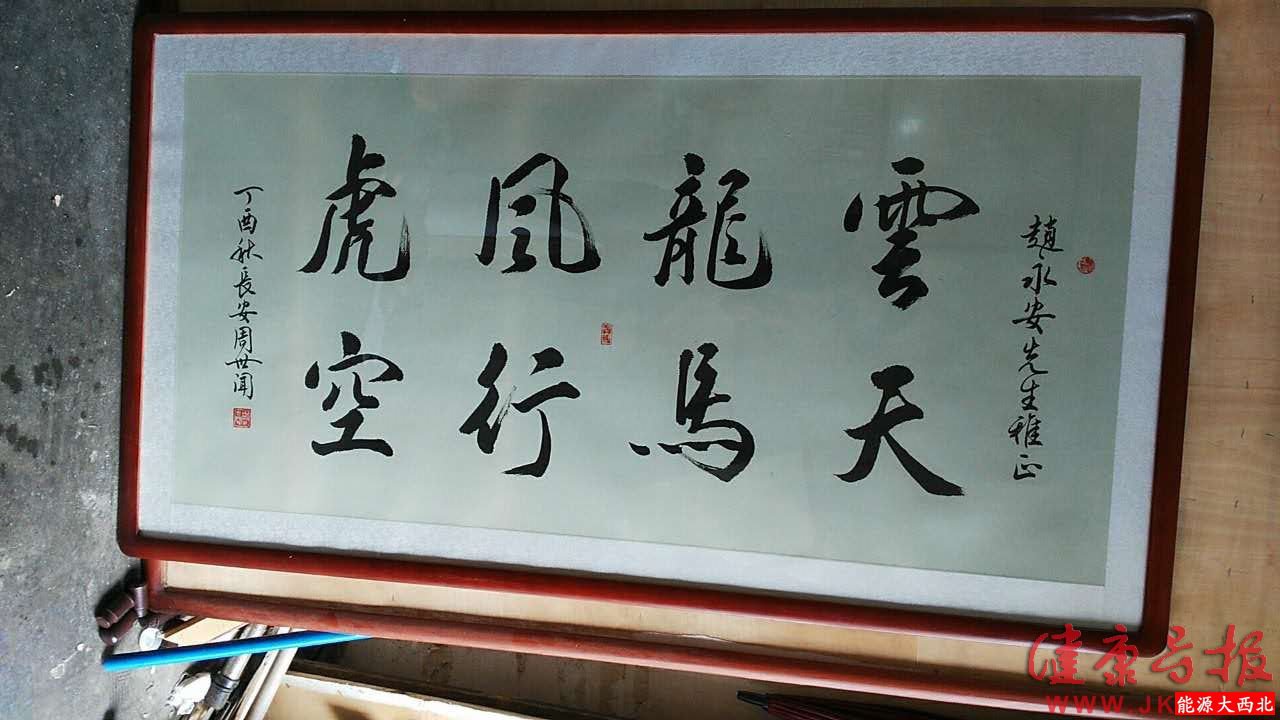 趙永安先生雅正
雲龍風虎
天馬行空
丁酉秋長安周世聞
健康号报
WWW.JK
能源大西北